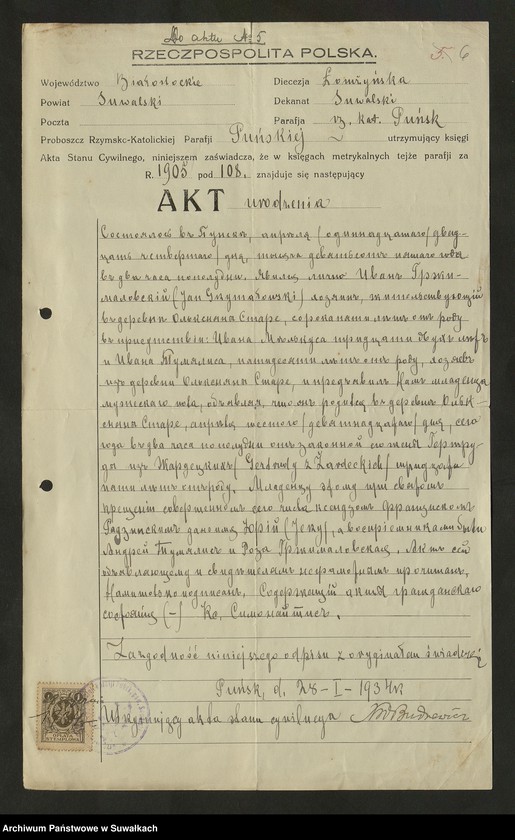 Do aktu № 5
RZECZPOSPOLITA POLSKA.
6
Województwo Białostockie Diecezja Łomżyńska
Powiat Suwalski Dekanat Suwalski
Poczta Parafja rz. kat. Puńsk
Proboszcz Rzymsko-Katolickiej Parafji Puńskiej utrzymujący księgi
Akta Stanu Cywilnego, niniejszem zaświadcza, że w księgach metrykalnych tejże parafji za
R. 1905 pod 108. znajduje się następujący
AKT urodzenia
Состоялось въ Пунскѣ, апрѣля (одиннадцатаго) двад-
цать четвертаго дня, тысяча девятьсотъ пятаго года
въ два часа пополудни. Явился лично Иванъ Гржи-
маловскій (Jan Grzymałowski) хозяинъ, жительствующій
въ деревнѣ Старе, сорока пяти лѣтъ отъ роду
въ присутствіи: Ивана тридцати лѣтъ
и Ивана Тумялиса, пятидесяти лѣтъ отъ роду, хозяевъ
изъ деревни Старе, и предъявилъ намъ младенца
мужескаго пола, объявляя, что онъ родился въ деревнѣ
Старе, апрѣля шестого (девятнадцатаго) дня, сего
года въ два часа пополудни отъ законной его жены Гертру-
ды изъ Жардецкихъ (Gertrudy z Żardeckich) тридцати
пяти лѣтъ отъ роду. Младенцу этому при святомъ
крещеніи совершенномъ сего числа ксендзомъ Францискомъ
Радзинскимъ дано имя Юрій (Jerzy), а воспріемниками были
Андрей Тумялисъ и Роза Гржималовская. Актъ сей
объявляющему и свидѣтелямъ неграмотнымъ прочитанъ,
Нами только подписанъ. Содержащій акты гражданскаго
состоянія (-) Кс. Симонайтисъ.
Za zgodność niniejszego odpisu z oryginałem świadczę
Puńsk, d. 28-I-1937 r.
Utrzymujący akta stanu cywilnego
Archiwum Państwowe w Suwałkach